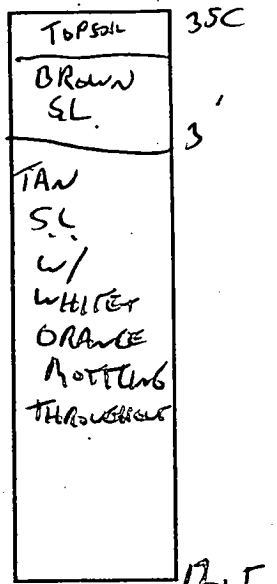 TOPSOIL 35C
BROWN
SL.
3'
TAN
S.L.
W/
WHITE &
ORANGE
MOTTLING
THROUGHOUT